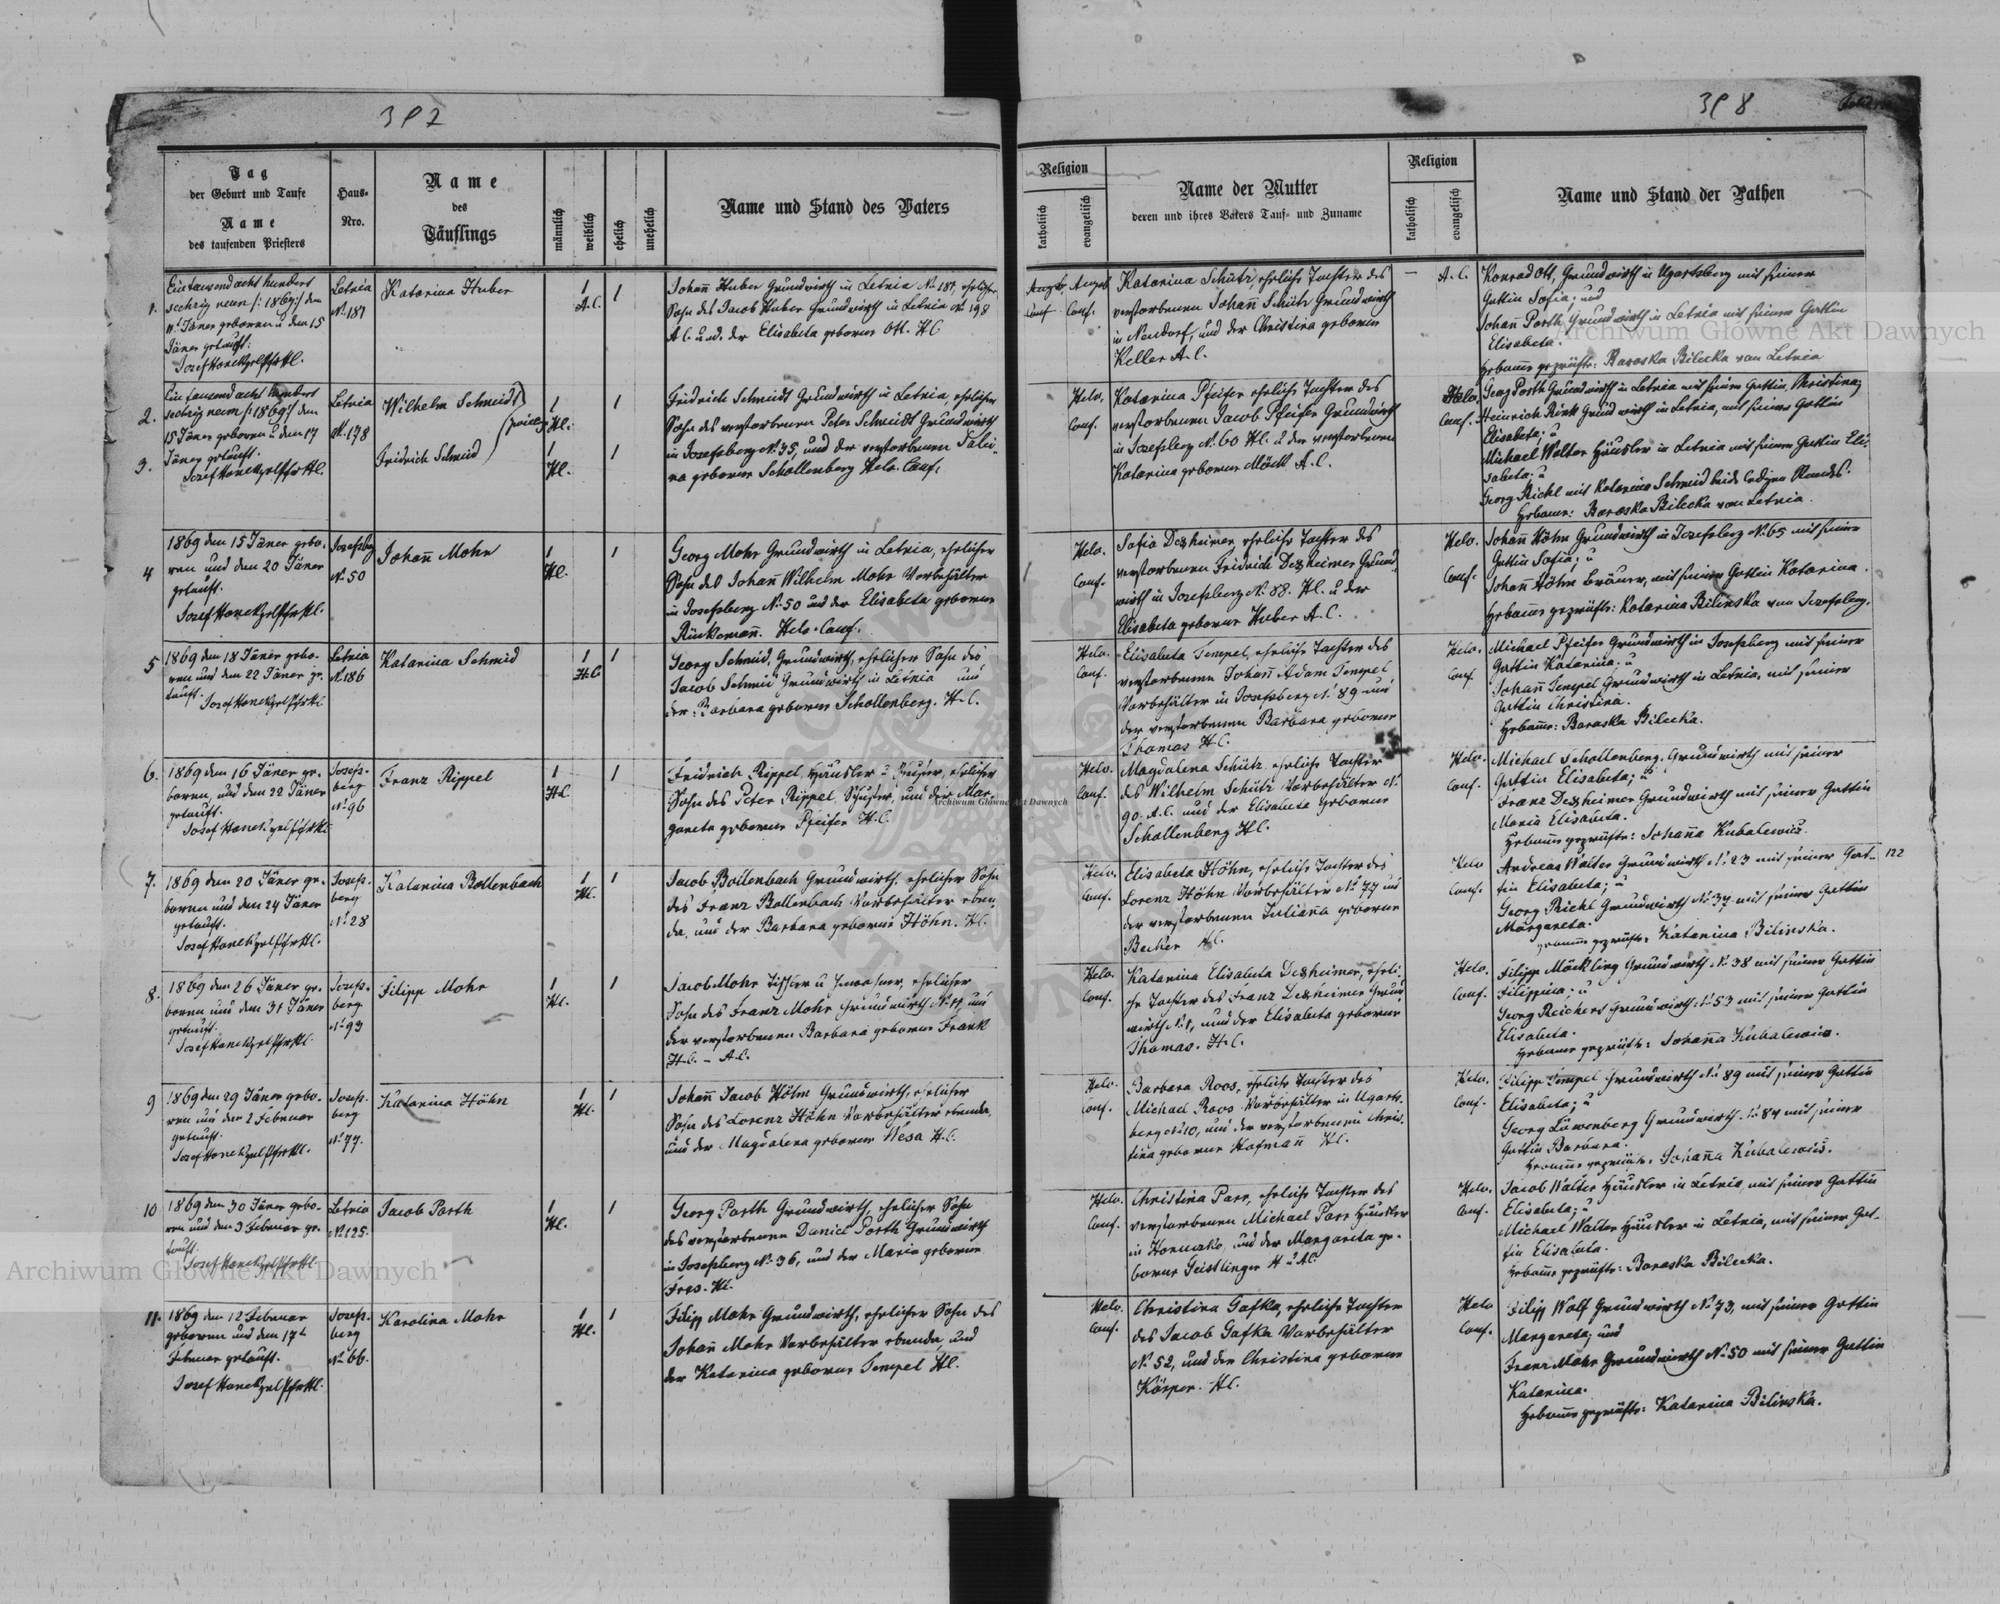 392
398
Tag
der Geburt und Taufe
Name
des taufenden Priesters
Haus-
Nro.
Name
des
Täuflings
männlich
weiblich
ehelich
unehelich
Name und Stand des Vaters
Religion
katholisch
evangelisch
Name der Mutter
deren und ihres Vaters Tauf- und Zuname
Religion
katholisch
evangelisch
Name und Stand der Pathen
1.
Eintausend acht hundert
sechzig neun /: 1869 :/ den
11t Jäner geboren u den 15
Jäner getauft:
Letnia
No 187
Katarina Huber
1
A.C.
1
Johann Huber Grundwirth in Letnia No 187, ehelicher
Sohn des Jacob Huber Grundwirth in Letnia No 198
A.C. und der Elisabeta geborne Ott. H.C
Augsb. Conf.
Katarina Schütz, eheliche Tochter des
verstorbenen Johann Schütz Grundwirth
in Neudorf, und der Christina geborne
Keller A.C.
— A.C.
Konrad Ott, Grundwirth in Ugartsberg mit seiner
Gattin Sofia; und
Johann Porth Grundwirth in Letnia mit seiner Gattin
Elisabeta.
Hebamme geprüfte: Baraska Bilecka von Letnia
2.
3.
Ein tausend acht hundert
sechzig neun /: 1869 :/ den
15 Jäner geboren u den 17
Jäner getauft.
Letnia
No 178
Wilhelm Schmidt
Fridrich Schmid
1
H.C.
1
1
H.C.
1
Fridrich Schmidt Grundwirth in Letnia, ehelicher
Sohn des verstorbenen Peter Schmidt Grundwirth
in Josefsberg No 35, und der verstorbenen
geborne Schollenberg Helv. Conf.
Helv.
Conf.
Katarina Pfeifer eheliche Tochter des
verstorbenen Jacob Pfeifer Grundwirth
in Josefsberg No 60 H.C. u der verstorbenen
Katarina geborne Möck A.C.
Helv.
Conf.
Georg Porth Grundwirth in Letnia mit seiner Gattin Christina;
Heinrich Rink Grundwirth in Letnia, mit seiner Gattin
Elisabeta; u
Michael Walter Häusler in Letnia mit seiner Gattin Eli-
sabeta; u
Georg Richl mit Katarina Schmid beide ledigen Standes.
Hebamme: Baraska Bilecka von Letnia.
4
1869 den 15 Jäner gebo-
ren und den 20 Jäner
getauft.
Josefsbg
No 50
Johann Mohr
1
H.C.
1
Georg Mohr Grundwirth in Letnia, ehelicher
Sohn des Johann Wilhelm Mohr Vorbehälter
in Josefsberg No 50 und der Elisabeta geborne
Rückemann. Helv. Conf.
Helv.
Conf.
Sofia Dexheimer eheliche Tochter des
verstorbenen Fridrich Dexheimer Grund-
wirth in Josefsberg No 88. H.C. u der
Elisabeta geborne Huber A.C.
Helv.
Conf.
Johann Höhn Grundwirth in Josefsberg No 65 mit seiner
Gattin Sofia; u
Johann Höhn Bräuer, mit seiner Gattin Katarina.
Hebamme geprüfte: Katarina Bilinska von Josefsberg.
5
1869 den 18 Jäner gebo-
ren und den 22 Jäner ge-
tauft.
Letnia
No 186
Katarina Schmid
1
H.C.
1
Georg Schmid, Grundwirth, ehelicher Sohn des
Jacob Schmid Grundwirth in Letnia und
der Barbara geborne Schollenberg. H.C.
Helv.
Conf.
Elisabeta Tempel, eheliche Tochter des
verstorbenen Johann Adam Tempel
Vorbehälter in Josefsberg No 89 und
der verstorbenen Barbara geborne
Thomas H.C.
Helv.
Conf.
Michael Pfeifer Grundwirth in Josefsberg mit seiner
Gattin Katarina; u
Johann Tempel Grundwirth in Letnia, mit seiner
Gattin Christina.
Hebamme: Baraska Bilecka.
6.
1869 den 16 Jäner ge-
boren, und den 22 Jäner
getauft.
Josefs-
berg
No 96
Franz Rippel
1
H.C.
1
Fridrich Rippel, Häusler u Schuster, ehelicher
Sohn des Peter Rippel, Schuster, und der Mar-
gareta geborne Pfeifer H.C.
Helv.
Conf.
Magdalena Schütz eheliche Tochter
des Wilhelm Schütz Vorbehälter No
90. A.C. und der Elisabeta geborne
Schollenberg H.C.
Helv.
Conf.
Michael Schollenberg, Grundwirth mit seiner
Gattin Elisabeta; u
Franz Dexheimer Grundwirth mit seiner Gattin
Maria Elisabeta.
Hebamme geprüfte: Johanna Kubalewicz.
7.
1869 den 20 Jäner ge-
boren und den 24 Jäner
getauft.
Josefs-
berg
No 28
Katarina Bollenbach
1
H.C.
1
Jacob Bollenbach Grundwirth, ehelicher Sohn
des Franz Bollenbach Vorbehälter eben-
da, und der Barbara geborne Höhn. H.C.
Helv.
Conf.
Elisabeta Höhn, eheliche Tochter des
Lorenz Höhn Vorbehälter No 77 und
der verstorbenen Julianna geborne
Becker H.C.
Helv
Conf.
Andreas Walter Grundwirth No 23 mit seiner Gat- 122
tin Elisabeta; u
Georg Richl Grundwirth No 37 mit seiner Gattin
Margareta.
Hebamme geprüfte: Katarina Bilinska.
8.
1869 den 26 Jäner ge-
boren und den 31 Jäner
getauft.
Josefs-
berg
No 93
Filipp Mohr
1
H.C.
1
Jacob Mohr Tischler u Inwohner, ehelicher
Sohn des Franz Mohr Grundwirth und
der verstorbenen Barbara geborne Frank
H.C. – A.C.
Helv.
Conf.
Katarina Elisabeta Dexheimer, eheli-
che Tochter des Franz Dexheimer Grund-
wirth No 1, und der Elisabeta geborne
Thomas. H.C.
Helv.
Conf.
Filipp Möckling Grundwirth No 38 mit seiner Gattin
Filippina; u
Georg Reichert Grundwirth No 53 mit seiner Gattin
Elisabeta.
Hebamme geprüfte: Johanna Kubalewicz.
9
1869 den 29 Jäner gebo-
ren und den 2 Februar
getauft.
Josefs-
berg
No 77.
Katarina Höhn
1
H.C.
1
Johann Jacob Höhn Grundwirth, ehelicher
Sohn des Lorenz Höhn Vorbehälter ebenda,
und der Magdalena geborne Wesa H.C.
Helv.
Conf.
Barbara Roos, eheliche Tochter des
Michael Roos Vorbehälter in Ugarts-
berg No 10, und der verstorbenen Chris-
tina geborne Hofmann H.C.
Helv.
Conf.
Filipp Tempel Grundwirth No 89 mit seiner Gattin
Elisabeta; u
Georg Löwenberg Grundwirth No 84 mit seiner
Gattin Barbara.
Hebamme geprüfte: Johanna Kubalewicz.
10
1869 den 30 Jäner gebo-
ren und den 3 Februar ge-
tauft.
Letnia
No 125.
Jacob Porth
1
H.C.
1
Georg Porth Grundwirth, ehelicher Sohn
des verstorbenen Daniel Porth Grundwirth
in Josefsberg No 36, und der Maria geborne
H.C.
Helv.
Conf.
Christina Parr, eheliche Tochter des
verstorbenen Michael Parr Häusler
in und der Margareta ge-
borne Geistlinger H u A.C.
Helv.
Conf.
Jacob Walter Häusler in Letnia, mit seiner Gattin
Elisabeta; u
Michael Walter Häusler in Letnia, mit seiner Gat-
tin Elisabeta.
Hebamme geprüfte: Baraska Bilecka.
11.
1869 den 12 Februar
geboren und den 17t
Februar getauft.
Josefs-
berg
No 66.
Karolina Mohr
1
H.C.
1
Filipp Mohr Grundwirth, ehelicher Sohn des
Johann Mohr Vorbehälter ebenda, und
der Katarina geborne Tempel H.C.
Helv.
Conf.
Christina Gafka, eheliche Tochter
des Jacob Gafka Vorbehälter
No 52, und der Christina geborne
Körper. H.C.
Helv
Conf.
Filipp Wolf Grundwirth No 73, mit seiner Gattin
Margareta; und
Franz Mohr Grundwirth No 50 mit seiner Gattin
Katarina.
Hebamme geprüfte: Katarina Bilinska.
Archiwum Główne Akt Dawnych
Archiwum Główne Akt Dawnych
Archiwum Główne Akt Dawnych